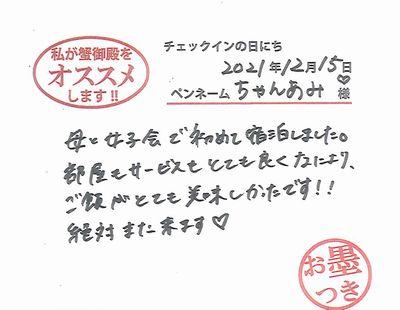 私が蟹御殿を
オススメ
します!!
チェックインの日にち
2021年12月15日
ペンネーム ちゃんあみ♡様
母と女子会で初めて宿泊しました。
部屋もサービスもとても良くなにより、
ご飯がとても美味しかったです!!
絶対また来ます♡
お墨
つき